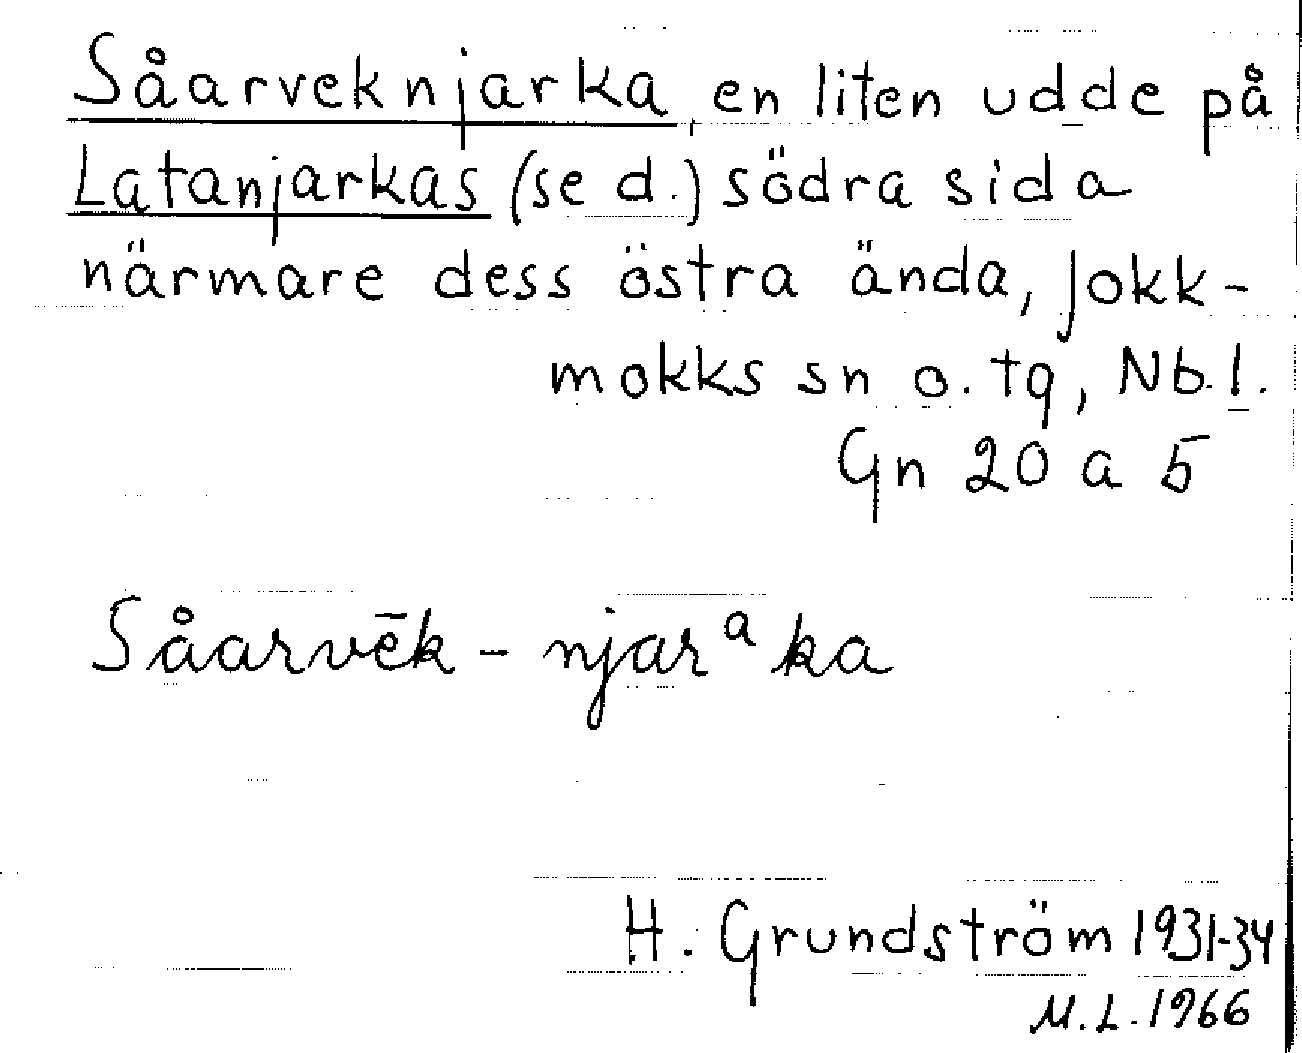 Såarveknjarka, en liten udde på
Latanjarkas (se d.) södra sida
närmare dess östra ända, Jokk-
mokks sn o. tg, Nb. l.
Gn 20 a 5
Såarvēk - njarᵃka
H. Grundström 1931-34
M.L. 1966